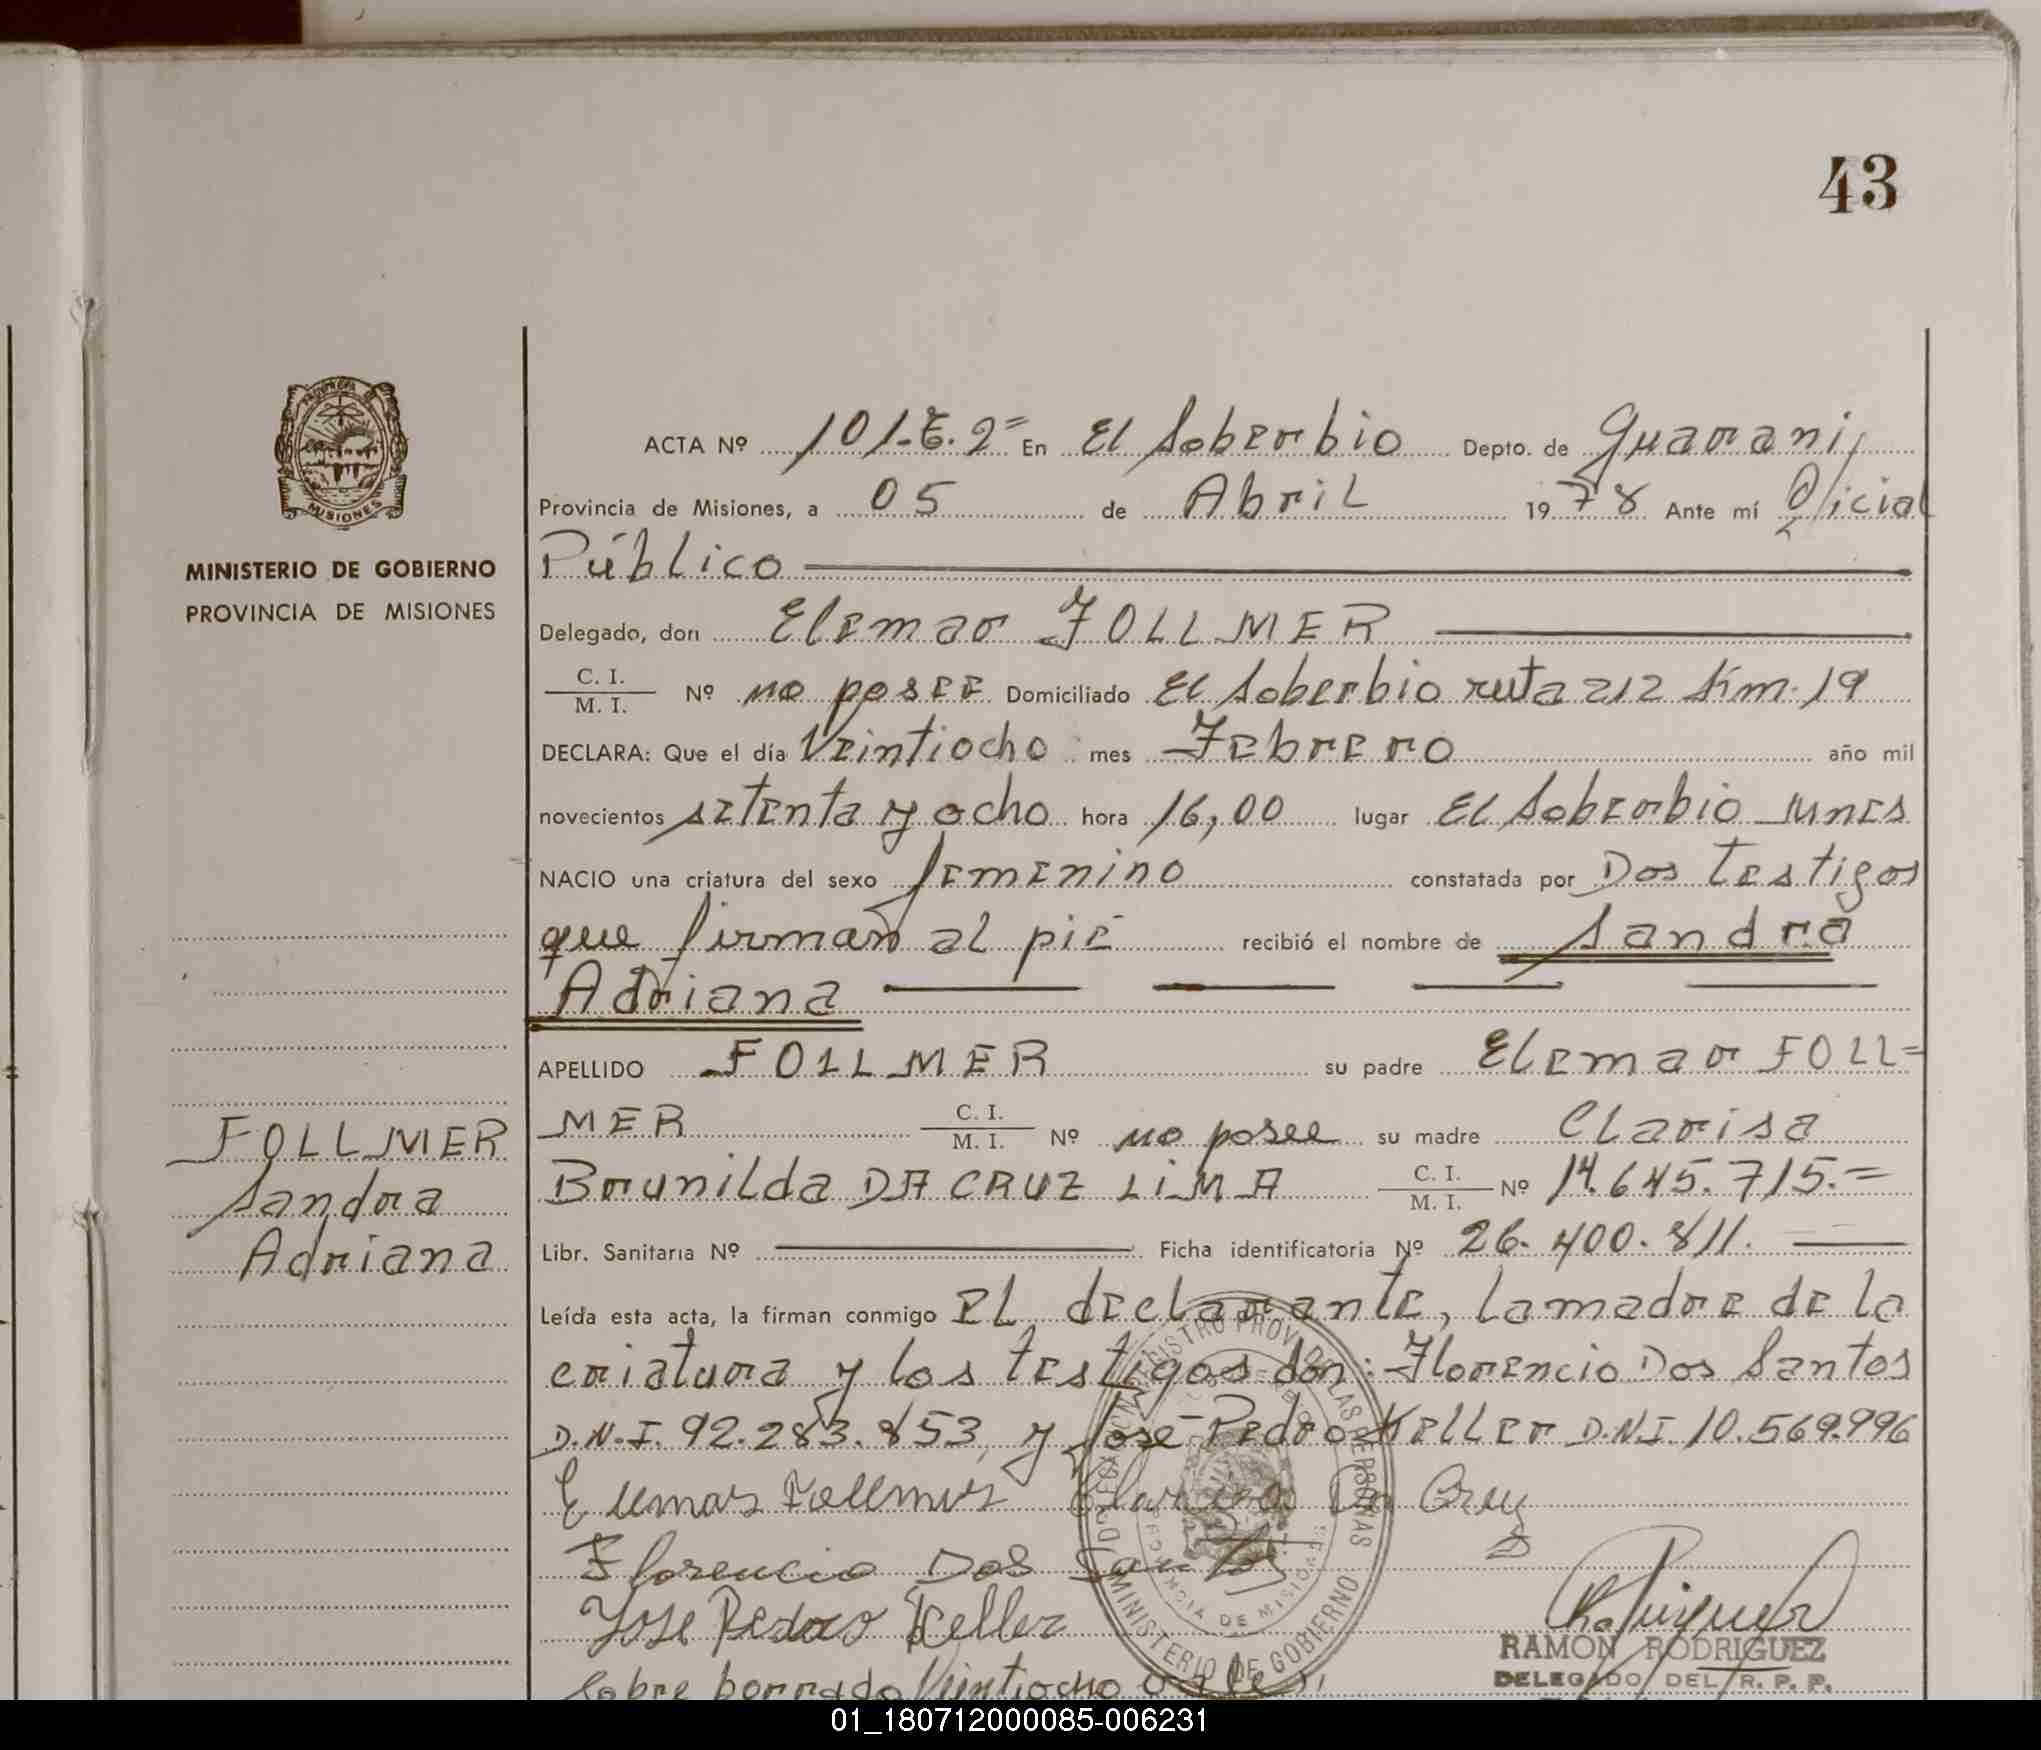 43
ACTA Nº 101-T.2= En El Soberbio Depto. de Guarani,
Provincia de Misiones, a 05 de Abril 1978 Ante mí Oficial
Público
MINISTERIO DE GOBIERNO
PROVINCIA DE MISIONES
Delegado, don Elemar FOLLMER
C. I.
M. I. Nº no posee Domiciliado El Soberbio ruta 212 Km. 19
DECLARA: Que el día Veintiocho mes Febrero año mil
novecientos setenta y ocho hora 16,00 lugar El Soberbio lunes
NACIO una criatura del sexo femenino constatada por Dos testigos
que firman al pié recibió el nombre de Sandra
Adriana
APELLIDO FOLLMER su padre Elemar FOLL=
MER C. I.
M. I. Nº no posee su madre Clarisa
Brunilda DA CRUZ LIMA C. I.
M. I. Nº 14.645.715.=
Libr. Sanitaria Nº Ficha identificatoria Nº 26.400.811.
Leída esta acta, la firman conmigo El declarante, la madre de la
criatura y los testigos don: Florencio Dos Santos
D.N.I. 92.283.853, y José Pedro Keller D.N.I. 10.569.996
FOLLMER
Sandra
Adriana
Clarisa Da Cruz
Florencio Dos Santos
Jose Pedro Keller
RAMON RODRIGUEZ
DELEGADO DEL R. P. P.
Sobre borrado Veintiocho vale
MINISTERIO DE GOBIERNO
PROVINCIA DE MISIONES
01_180712000085-006231